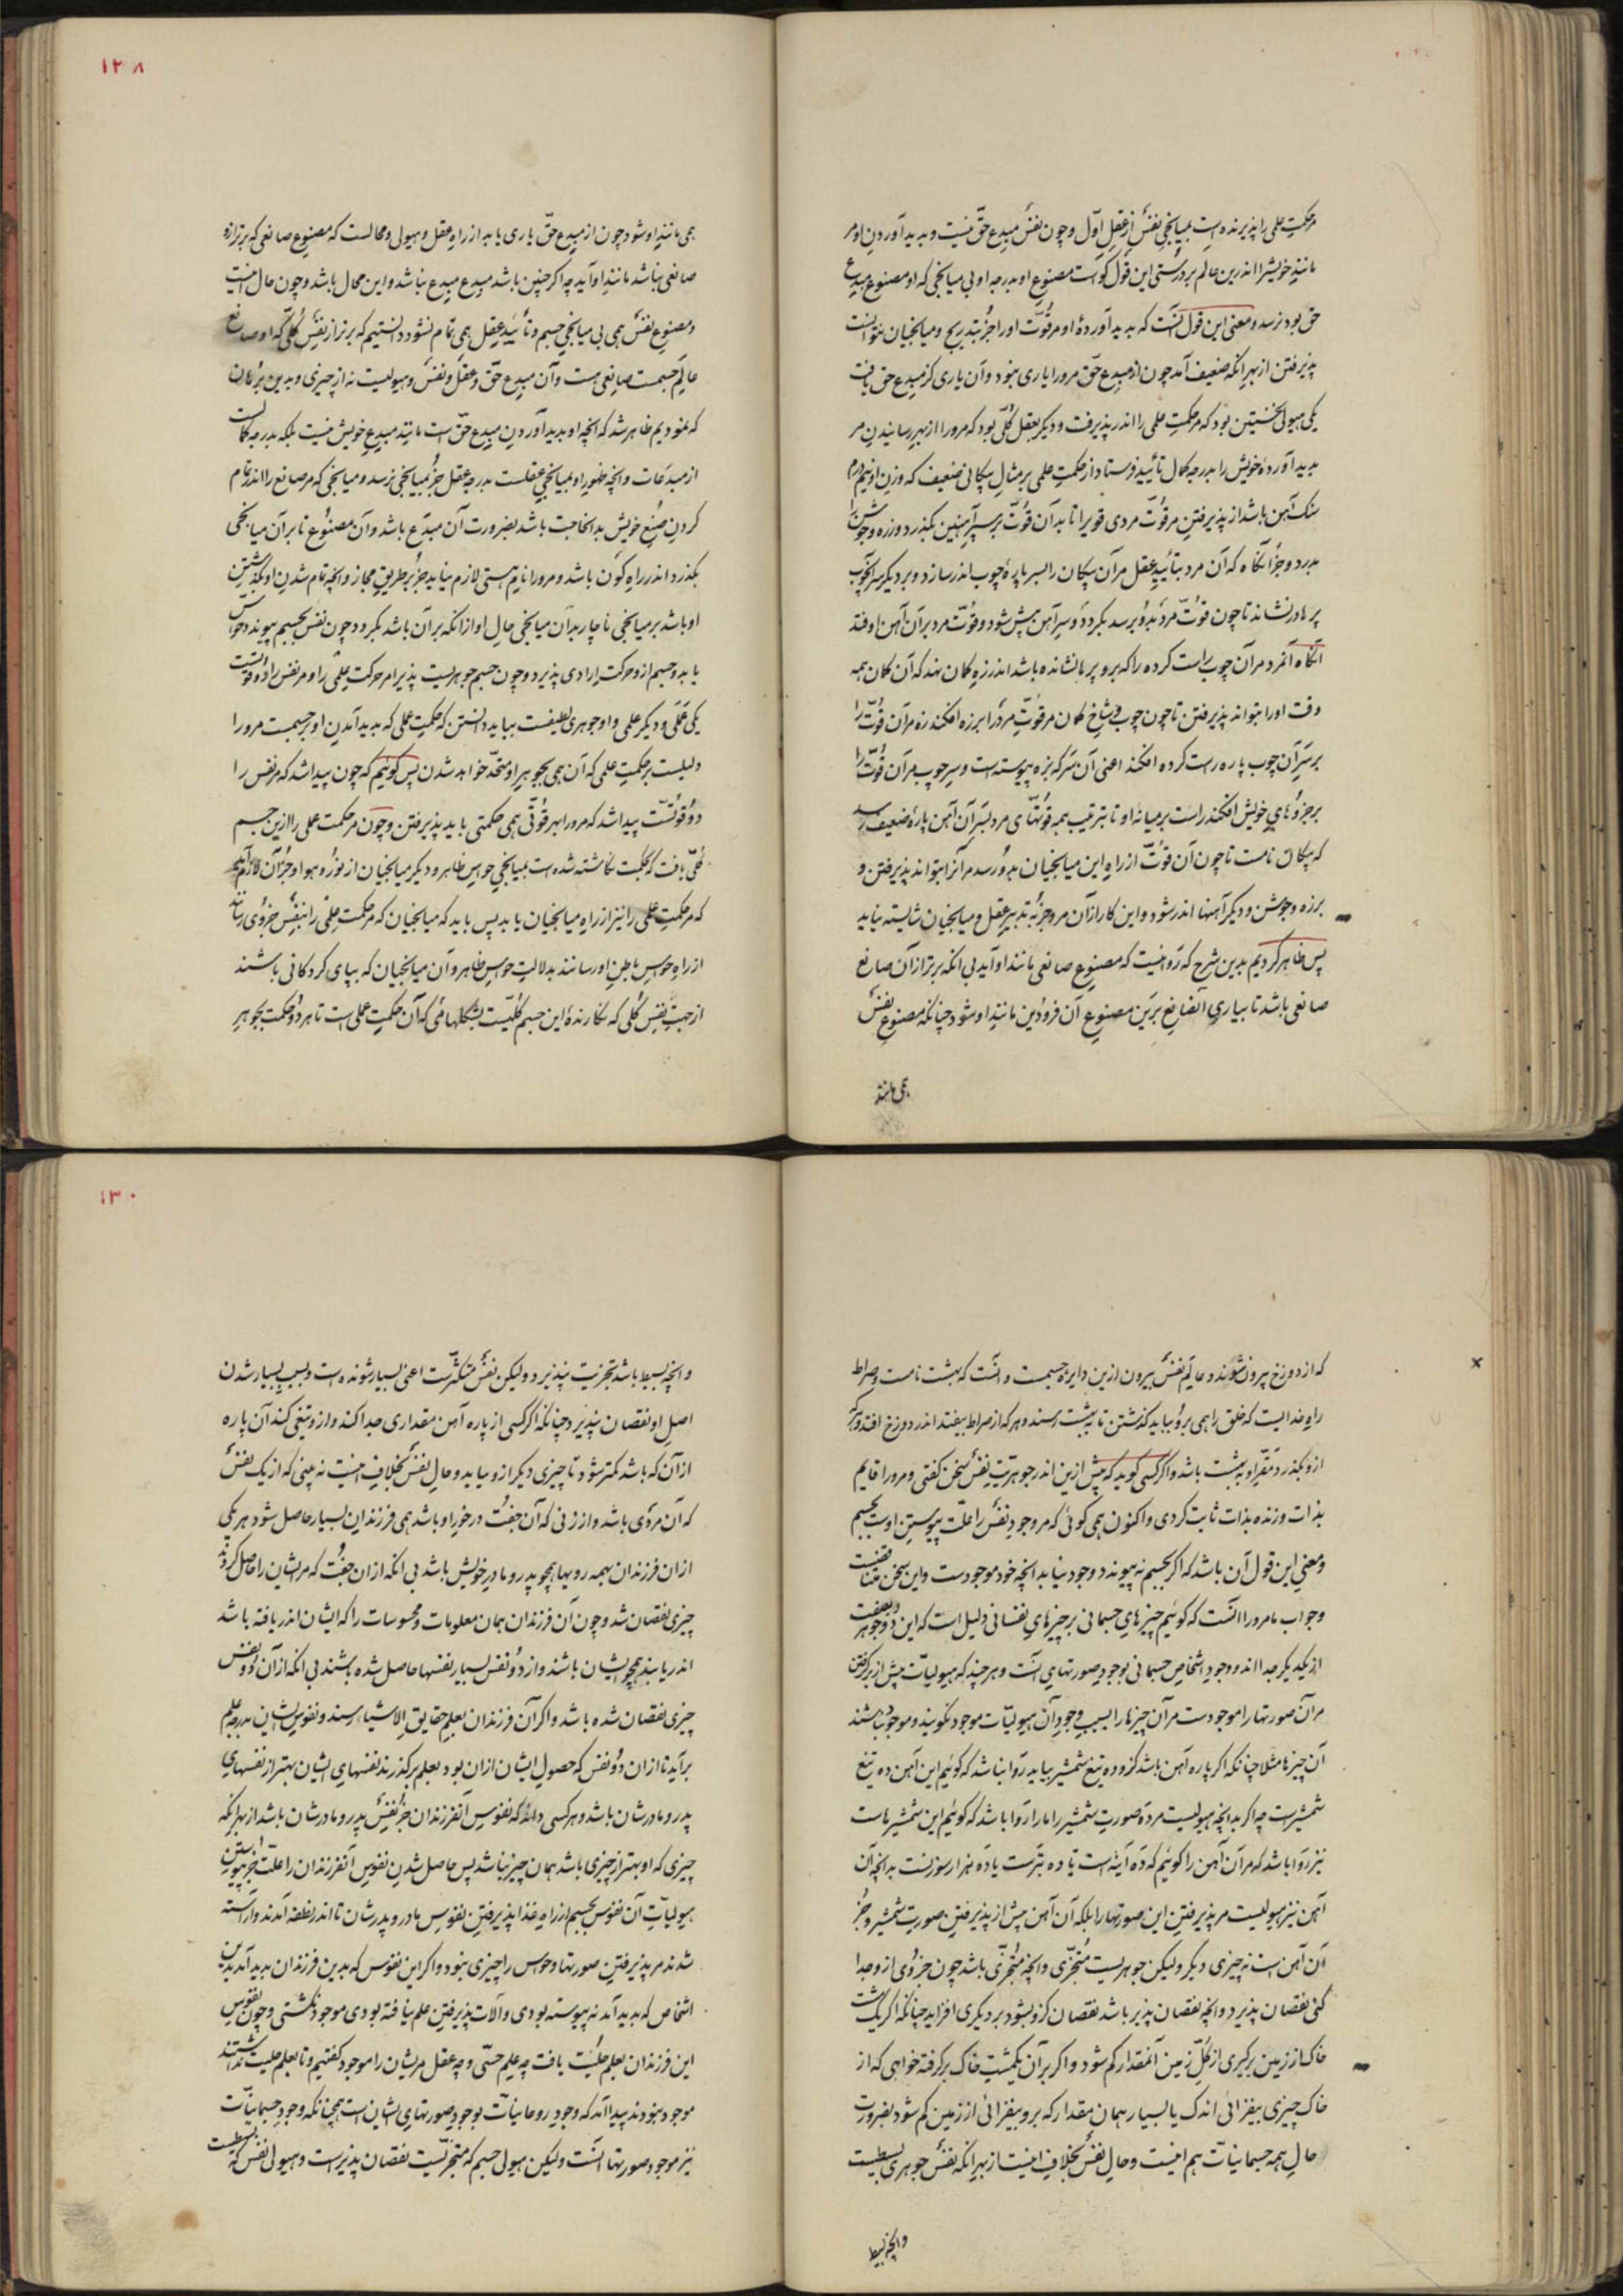 مر حکمت علمی را پذیرنده است بمیانجی نفس از عقل اول و چون نفس مبدع حق نیست و بدید آوردن او مر
مانند خویش را اندرین عالم بر درستی این قول گواست مصنوع او بدرجه او بی میانجی که او مصنوع مبدع
حق بود نرسد و معنی این قول آنست که بدید آوردهٔ او مر قوت او را جز بتدریج و میانجیان نتوانست
پذیرفتن از بهر آنکه ضعیف آمد چون از مبدع حق مرورا یاری نبود و آن یاری کز مبدع حق یافت
یکی هیولی نخستین بود که مر حکمت علمی را اندر پذیرفت و دیگر عقل کلی بود که مرورا از بهر رسانیدن مر
بدید آوردهٔ خویش را بدرجه کمال تأیید فرستاد از حکمت علمی بر مثال پیکانی ضعیف که وزن او نیم درم
سنک آهن باشد از پذیرفتن مر قوت مردی قوی را تا بدان قوت بر سپر آهنین بگذرد و زره و جوشن را
بدرد و جز آنگاه که آن مرد بتأیید عقل مر آن پیکان را بسر پارهٔ چوب اندر سازد و بر دیگر سر آن چوب
پرها در نشاند تا چون قوت مرد بدو برسد بگردد و سر آهن پیش شود و قوت مرد بر آن آهن اوفتد
آنگاه آنمرد مر آن چوب راست کرده را که برو پرها نشانده باشد اندر زه کمان نهد که آن کمان همه
وقت او را بتواند پذیرفتن تا چون چوب و شاخ کمان مر قوت مرد را بر زه افکند زه مر آن قوت را
بر سر آن چوب پاره راست کرده افکند اعنی آن سر که بزه پیوسته است و سر چوب مر آن قوت را
بر جزوهای خویش افکند راست بر میانه او تا بترتیب همه قوتهای مرد بسر آن آهن پارهٔ ضعیف رسد
که پیکان نامست تا چون آن قوت از راه این میانجیان بدو رسد مر آنرا بتواند پذیرفتن و
بزره و جوشن و دیگر آهنها اندر شود و این کار از آن مرد جز بتدبیر عقل و میانجیان شایسته نیاید
پس ظاهر کردیم بدین شرح که روا نیست که مصنوع صانعی مانند او آید بی آنکه برتر از آن صانع
صانعی باشد تا بیاری آن صانع برین مصنوع آن فرودین مانند او شود چنانکه مصنوع نفس
همی مانند
۱۲۸
همی مانند او شود چون از مبدع حق یاری یابد از راه عقل و هیولی و محالست که مصنوع صانعی که برتر ازو
صانعی نباشد مانند او آید چه اگر چنین باشد مبدع مبدع نباشد و این محال باشد و چون حال اینست
و مصنوع نفس همی بی میانجی جسم و تأیید عقل همی تمام نشود دانستیم که برتر از نفس کلی که او صانع
عالم جسمست صانعی هست و آن مبدع حق و عقل و نفس و هیولیست نه از چیزی و بدین برهان
که نمودیم ظاهر شد که آنچه او بدید آوردن مبدع حق است مانند مبدع خویش نیست بلکه بدرجه کمالست
از مبدعات و آنچه ظهور او بمیانجی عقلست بدرجه عقل جز بمیانجی نرسد و میانجی که مر صانع را اندر تمام
کردن صنع خویش بدان حاجت باشد بضرورت آن مبدع باشد و آن مصنوع تا بر آن میانجی
بگذرد اندر راه کون باشد و مرورا نام هستی لازم نیاید جز بر طریق مجاز و آنچه تمام شدن او بگذشتن
او باشد بر میانجی ناچار بدان میانجی حال او از آنکه بر آن باشد بگردد چون نفس بجسم پیوندد حواس
یابد و جسم ازو حرکت ارادی پذیرد و چون جسم جوهریست پذیرا مر حرکت علمی را و مر نفس را دو قوتست
یکی عملی و دیگر علمی و او جوهری لطیفست بباید دانستن که حکمت عملی که بدید آمدن او بجسمست مرورا
دلیلست بر حکمت علمی که آن همی بجوهر او متحد خواهد شدن پس گوئیم که چون پیدا شد که مر نفس را
دو قوتست پیدا شد که مرورا بهر قوتی همی حکمتی باید پذیرفتن و چون مر حکمت عملی را ازین جسم
کلی یافت که بحکمت نگاشته شده است بمیانجی حواس ظاهر و دیگر میانجیان از نور و هوا و جز آن لازم آید
که مر حکمت علمی را نیز از راه میانجیان یابد پس باید که میانجیان که مر حکمت علمی را بنفس جزوی رسانند
از راه حواس باطن او رسانند بدلالت حواس ظاهر و آن میانجیان که بپای کردگانی باشند
از جهت نفس کلی که نگارندهٔ این جسم کلیست بشکلهائی که آن حکمت عملی است تا هر دو حکمت بجوهر
که از دوزخ بیرون شوند و عالم نفس بیرون ازین دایره جسمست و آنست که بهشت نامست و صراط
راه خدایست که خلق را همی برو بباید گذشتن تا ببهشت رسند و هر که از صراط بیفتد اندر دوزخ افتد و هر که
ازو بگذرد مقر او بهشت باشد و اگر کسی گوید که پیش ازین اندر جوهریت نفس سخن گفتی و مرورا قایم
بذات و زنده بذات ثابت کردی و اکنون همی گوئی که مر وجود نفس را علت پیوستن اوست بجسم
و معنی این قول آن باشد که اگر بجسم نه پیوندد وجود نیابد آنچه خود موجودست و این سخن متناقضست
وجواب ما مرورا آنست که گوئیم چیزهای جسمانی بر چیزهای نفسانی دلیل است که این دو جوهر بصفت
از یکدیگر جدااند و وجود اشخاص جسمانی بوجود صورتهای آنست و هر چند که هیولیات پیش از برگرفتن
مر آن صورتها را موجودست مر آن چیزها را بسبب وجود آن هیولیات موجود نگویند و موجود نباشند
آن چیزها مثلا چنانکه اگر پاره آهن باشد کزو ده تیغ شمشیر بیاید روا نباشد که گوئیم این آهن ده تیغ
شمشیرست چه اگر بدانچه هیولیست مر ده صورت شمشیر را ما را روا باشد که گوئیم این شمشیرهاست
نیز روا باشد که مر آن آهن را گوئیم که ده آینه است یا ده تبرست یا ده هزار سوزنست بدانچه آن
آهن نیز هیولیست مر پذیرفتن این صورتها را بلکه آن آهن پیش از پذیرفتن صورت شمشیر و جز
آن آهن است نه چیزی دیگر ولیکن جوهریست متجزی و آنچه متجزی باشد چون جزوی ازو جدا
کنی نقصان پذیرد و آنچه نقصان پذیر باشد نقصان کزو بشود بر دیگری افزاید چنانکه اگر یک مشت
خاک از زمین برگیری از کل زمین آنمقدار کم شود و اگر بر آن یکمشت خاک برگرفته خواهی که از
خاک چیزی بیفزائی اندک یا بسیار همان مقدار که برو بیفزائی از زمین کم شود بضرورت
حال همه جسمانیات هم اینست و حال نفس بخلاف اینست از بهر آنکه نفس جوهری بسیطست
وآنچه بسیط
۱۳۰
وآنچه بسیط باشد تجزیت نپذیرد ولیکن نفس متکثرست اعنی بسیار شونده است و بسبب بسیار شدن
اصل او نقصان نپذیرد چنانکه اگر کسی از پاره آهن مقداری جدا کند و ازو تیغی کند آن پاره
از آن که باشد کمتر شود تا چیزی دیگر ازو بیاید و حال نفس بخلاف اینست نه بینی که از یک نفس
که آن مردی باشد و از زنی که آن جفت درخور او باشد همی فرزندان بسیار حاصل شود هر یکی
از آن فرزندان بهمه رویها همچو پدر و مادر خویش باشد بی آنکه از آن جفت که مر ایشان را حاصل کردند
چیزی نقصان شد و چون آن فرزندان همان معلومات و محسوسات را که ایشان اندر یافته باشند
اندر یابند همچو ایشان باشند و از دو نفس بسیار نفسها حاصل شده باشند بی آنکه از آن دو نفس
چیزی نقصان شده باشد و اگر آن فرزندان بعلم حقایق الاشیاء رسند و نفوس ایشان بدرجه علم
برآید تا از آن دو نفس که حصول ایشان از آن بود بعلم برگذرند نفسهای ایشان بهتر از نفسهای
پدر و مادرشان باشد و هر کسی داند که نفوس آنفرزندان جز نفس پدر و مادرشان باشد از بهر آنکه
چیزی که او بهتر از چیزی باشد همان چیز نباشد پس حاصل شدن نفوس آنفرزندان را علت جز پیوستن
هیولیات آن نفوس بجسم از راه غذا پذیرفتن نفوس مادر و پدرشان تا اندر نطفه آمدند و آراسته
شدند مر پذیرفتن صورتها و حواس را چیزی نبود و اگر این نفوس که بدین فرزندان بدید آمد بدین
اشخاص که بدید آمد نه پیوسته بودی و آلات پذیرفتن علم نیافته بودی موجود نگشتی و چون نفوس
این فرزندان بعلم جلیت یافت چه علم حسی و چه عقل مریشان را موجود گفتیم و تا بعلم جلیت نداشتند
موجود نبودند پیدا آمد که وجود روحانیات بوجود صورتهای ایشان است همچنانکه وجود جسمانیات
نیز موجود صورتها آنست ولیکن هیولی جسم که متجزیست نقصان پذیرست و هیولی نفس که بسیطست